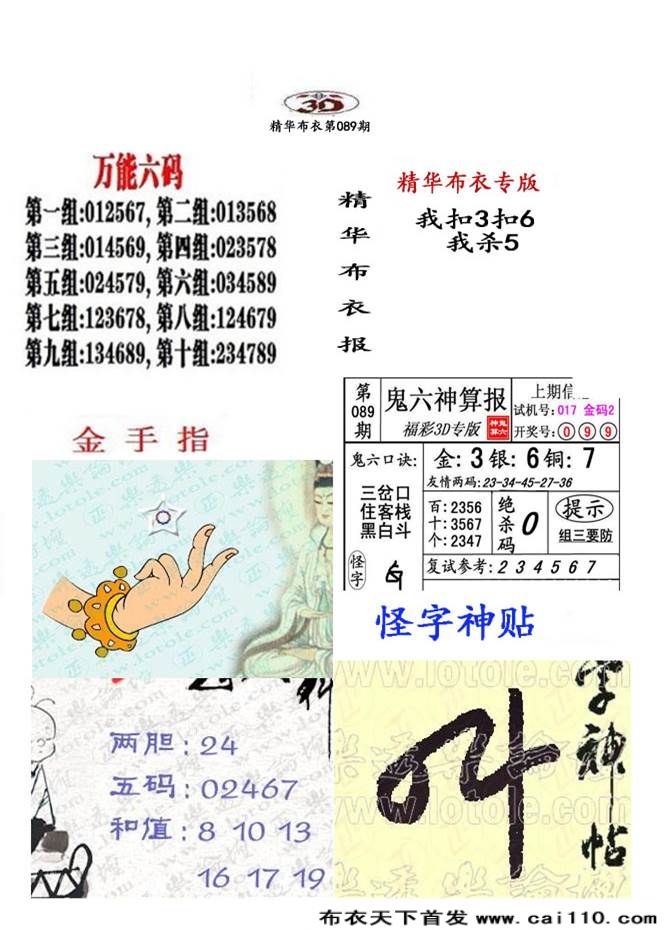 3D
精华布衣第089期
万能六码
第一组:012567, 第二组:013568
第三组:014569, 第四组:023578
第五组:024579, 第六组:034589
第七组:123678, 第八组:124679
第九组:134689, 第十组:234789
精华布衣报
精华布衣专版
我扣3扣6
我杀5
第089期
鬼六神算报
福彩3D专版
上期信
试机号:017 金码2
开奖号:099
鬼六口诀:
三岔口
住客栈
黑白斗
怪字
金:3银:6铜:7
友情两码:23-34-45-27-36
百:2356
十:3567
个:2347
绝杀码
0
提示
组三要防
复试参考:234567
金手指
www.lotole.com
怪字神贴
两胆:24
五码:02467
和值:8 10 13
16 17 19
www.lotole.com
字神帖
布衣天下首发 www.cai110.com